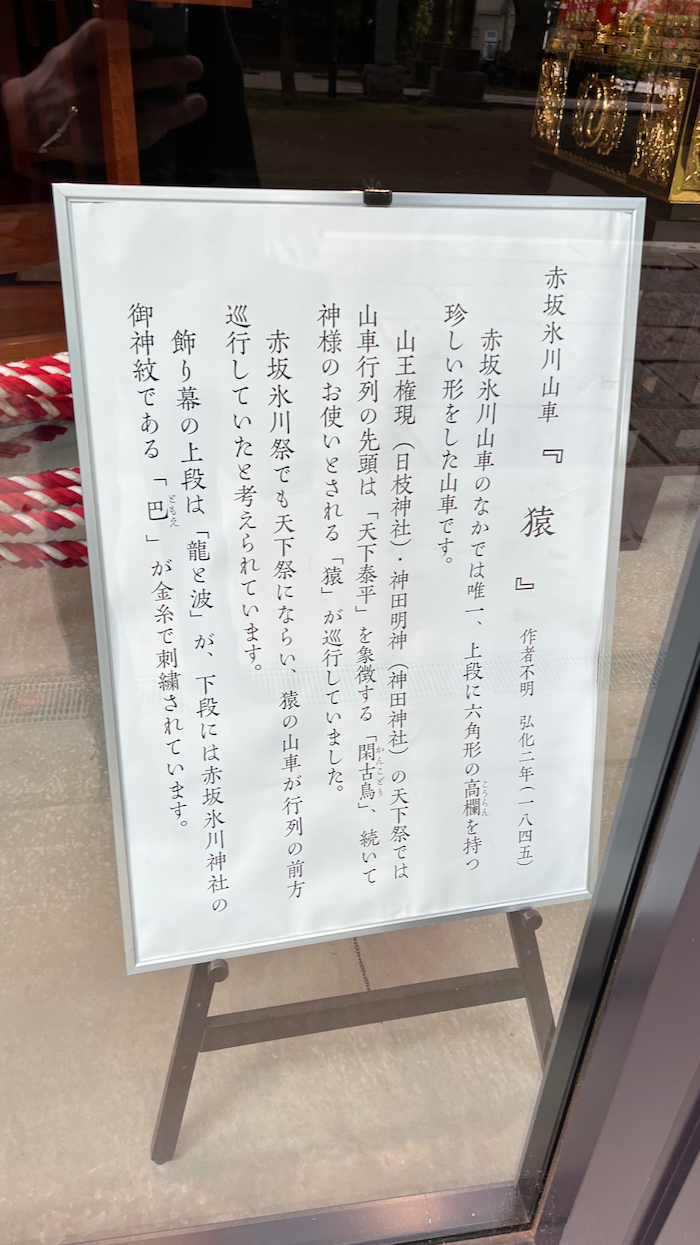 赤坂氷川山車『猿』 作者不明 弘化二年(一八四五)
赤坂氷川山車のなかでは唯一、上段に六角形の高欄を持つ
こうらん
珍しい形をした山車です。
山王権現(日枝神社)・神田明神(神田神社)の天下祭では
山車行列の先頭は「天下泰平」を象徴する「閑古鳥」、続いて
かんこどり
神様のお使いとされる「猿」が巡行していました。
赤坂氷川祭でも天下祭にならい、猿の山車が行列の前方
巡行していたと考えられています。
飾り幕の上段は「龍と波」が、下段には赤坂氷川神社の
御神紋である「巴」が金糸で刺繍されています。
ともえ